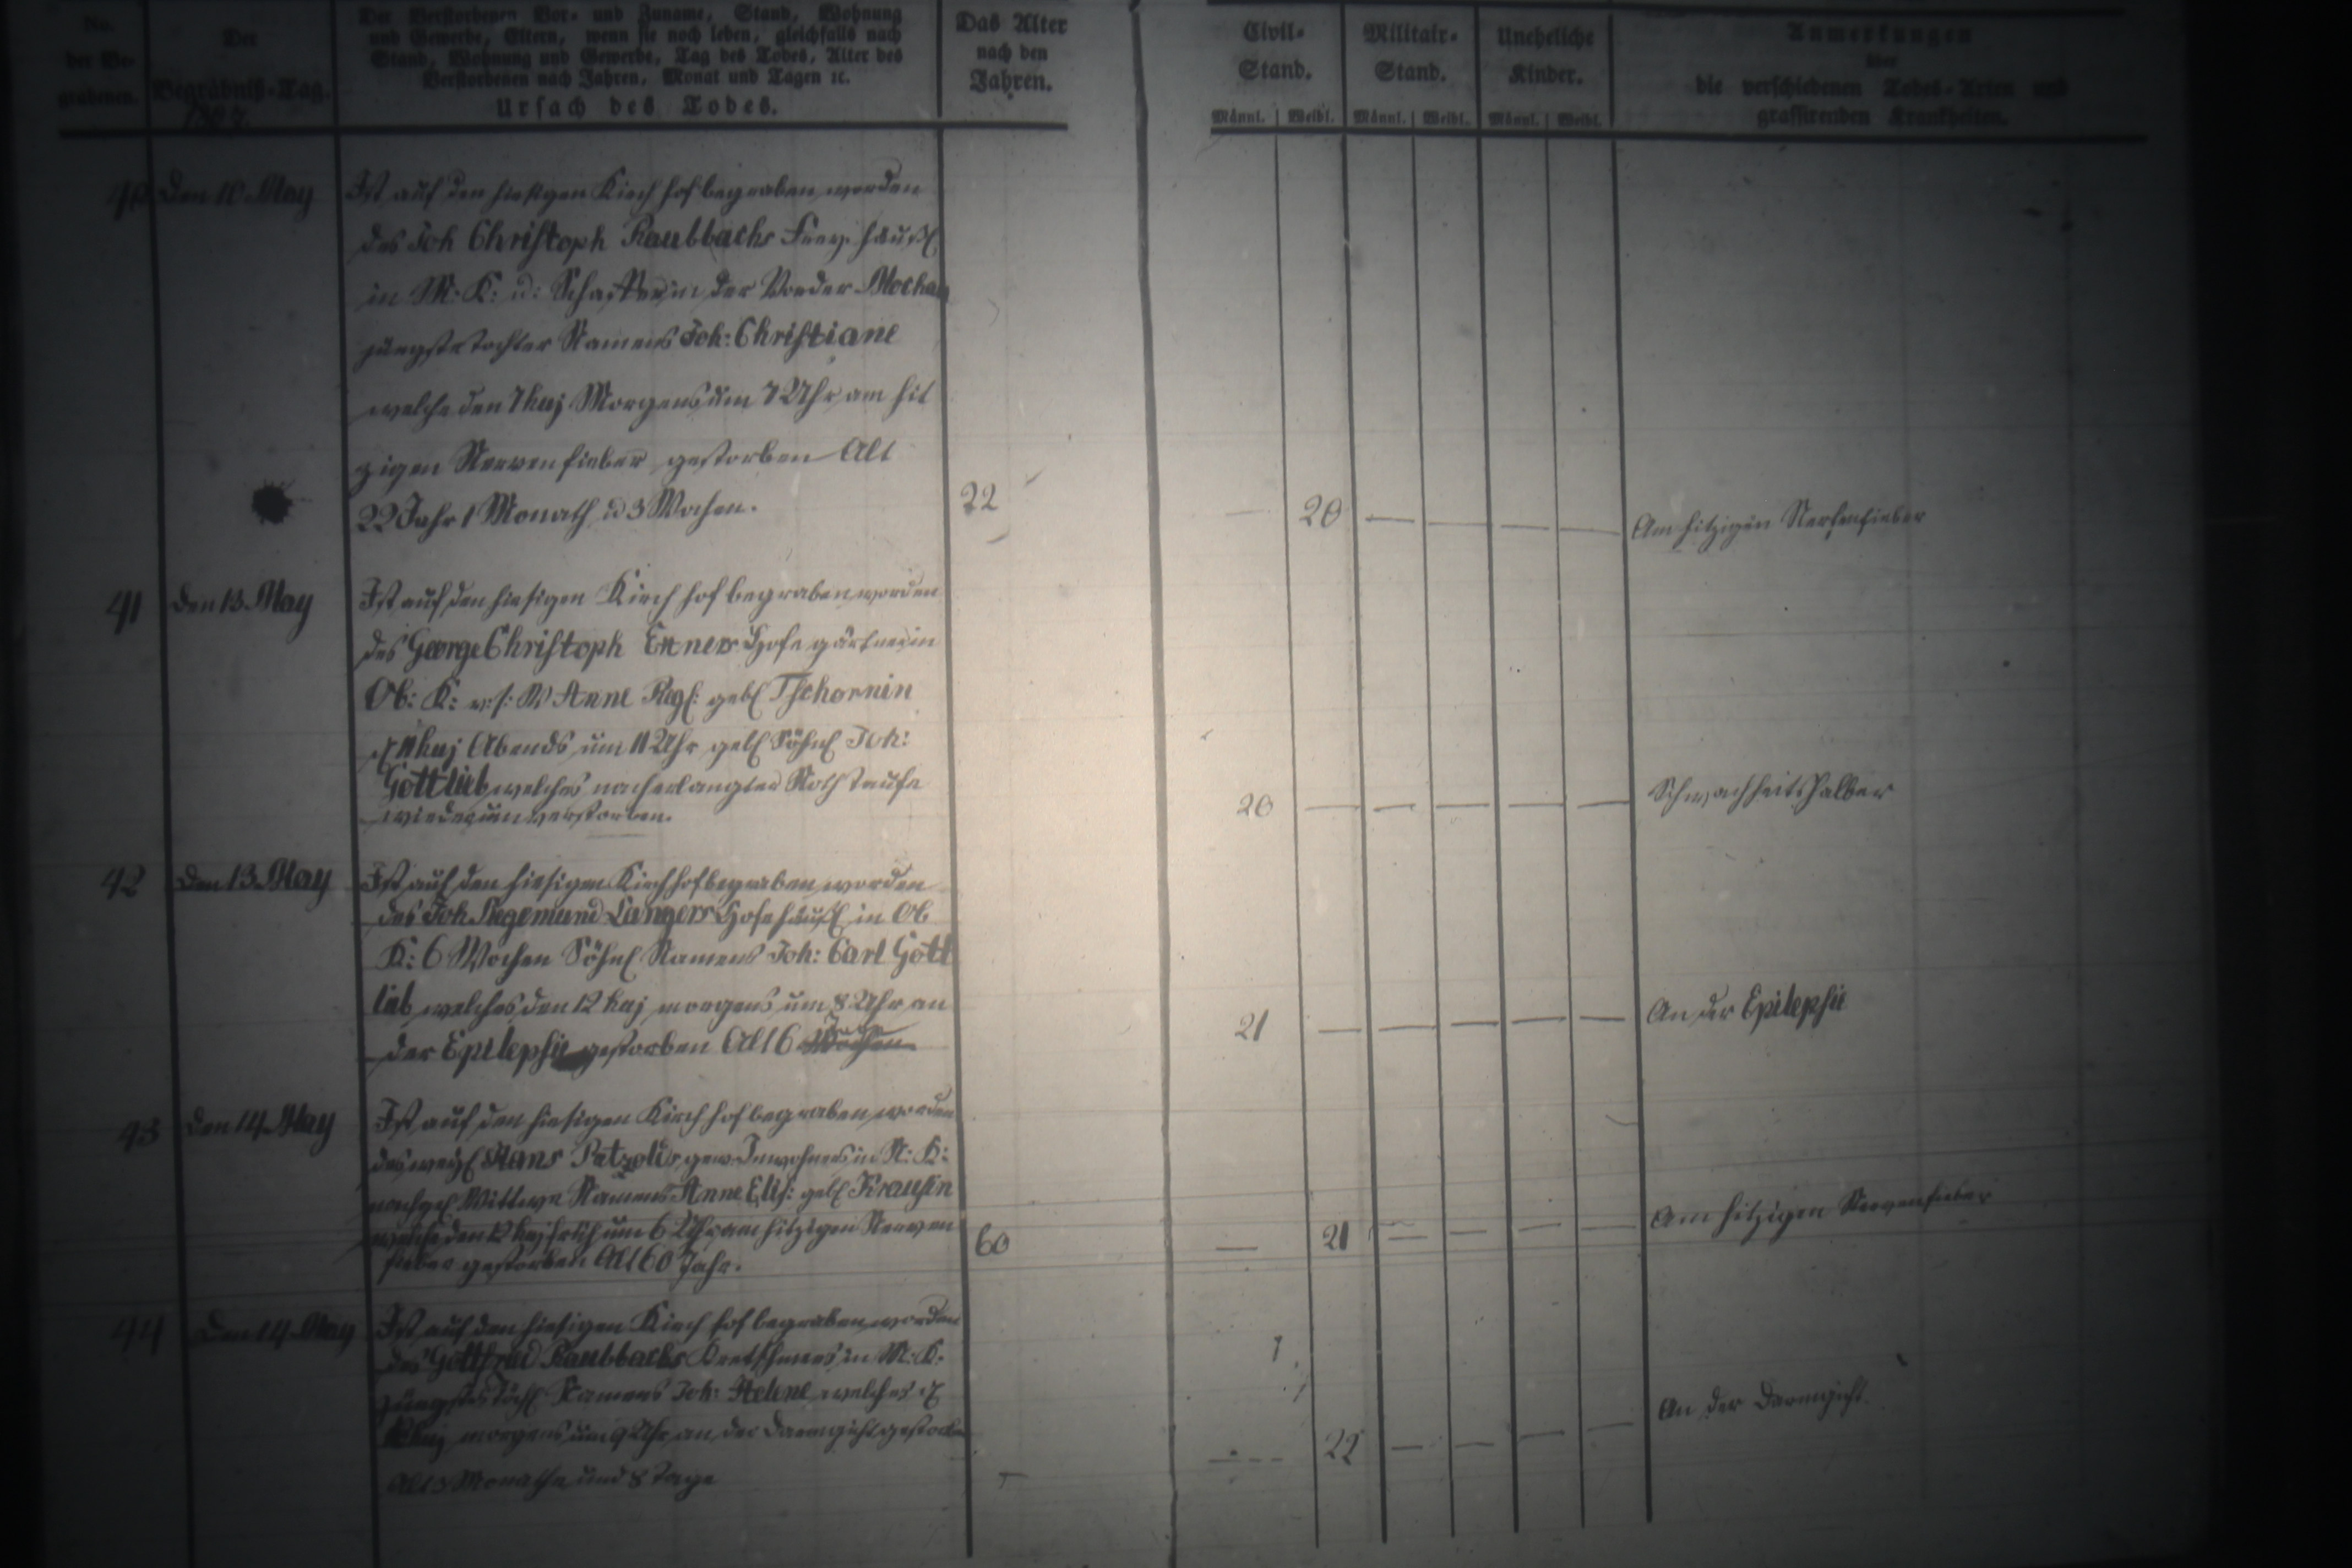 No.
der Be-
grabenen.
Der
Begräbniß-Tag.
1807.
Der Verstorbenen Vor- und Zuname, Stand, Wohnung
und Gewerbe, Eltern, wenn sie noch leben, gleichfalls nach
Stand, Wohnung und Gewerbe, Tag des Todes, Alter des
Verstorbenen nach Jahren, Monat und Tagen ꝛc.
Ursach des Todes.
Das Alter
nach den
Jahren.
Civil-
Stand.
Militair-
Stand.
Uneheliche
Kinder.
Anmerkungen
über
die verschiedenen Todes-Arten und
grassirenden Krankheiten.
Männl. Weibl. Männl. Weibl. Männl. Weibl.
40 den 10 May Ist auf den hiesigen Kirchhof begraben worden
des Joh Christoph Raubbachs Frey häußl
in M: K: u: in der Vorder Mochau
jüngste Tochter Namens Joh: Christiane
welche den 7 huj Morgens um 7 Uhr am hit
zigen Nervenfieber gestorben Alt
22 Jahr 1 Monath u 3 Wochen. 22 — 20 — — — — Am hitzigen Nervenfieber
41 den 13 May Ist auf den hiesigen Kirch hof begraben worden
des George Christoph Exners Hofegärtner in
Ob: K: v: s: W Anne Ros: geb Tschornin
d 11 huj Abends um 11 Uhr geb Söhnl Joh:
Gottlieb welches nach erlangter Noth taufe
wiederum verstorben. 20 — — — — — Schwachheits halber
42 den 13 May Ist auf den hiesigen Kirchhof begraben worden
des Joh Siegemund Langers Hofehäußl in Ob
K: 6 Wochen Söhnl Namens Joh: Carl Gott
lieb welches den 12 huj morgens um 8 Uhr an
der Epilepsie gestorben Alt 6 Tage 21 — — — — — An der Epilepsie
43 den 14 May Ist auf den hiesigen Kirch hof begraben worden
des weyl Hans Patzolds gew Inwohners in N: K:
nachgel Wittwe Namens Anne Elis: geb Krausin
welche den 12 huj früh um 6 Uhr am hitzigen Nerven
fieber gestorben Alt 60 Jahr. 60 — 21 — — — — Am hitzigen Nervenfieber
44 den 14 May Ist auf den hiesigen Kirch hof begraben worden
des Gottfried Raubbachs Kretschmers in M: K:
jüngstes Töchl Namens Joh: Helene welches d
huj morgens um 9 Uhr an der Darmgicht gestorben
Alt 3 Monathe und 8 Tage — 22 — — — — An der Darmgicht